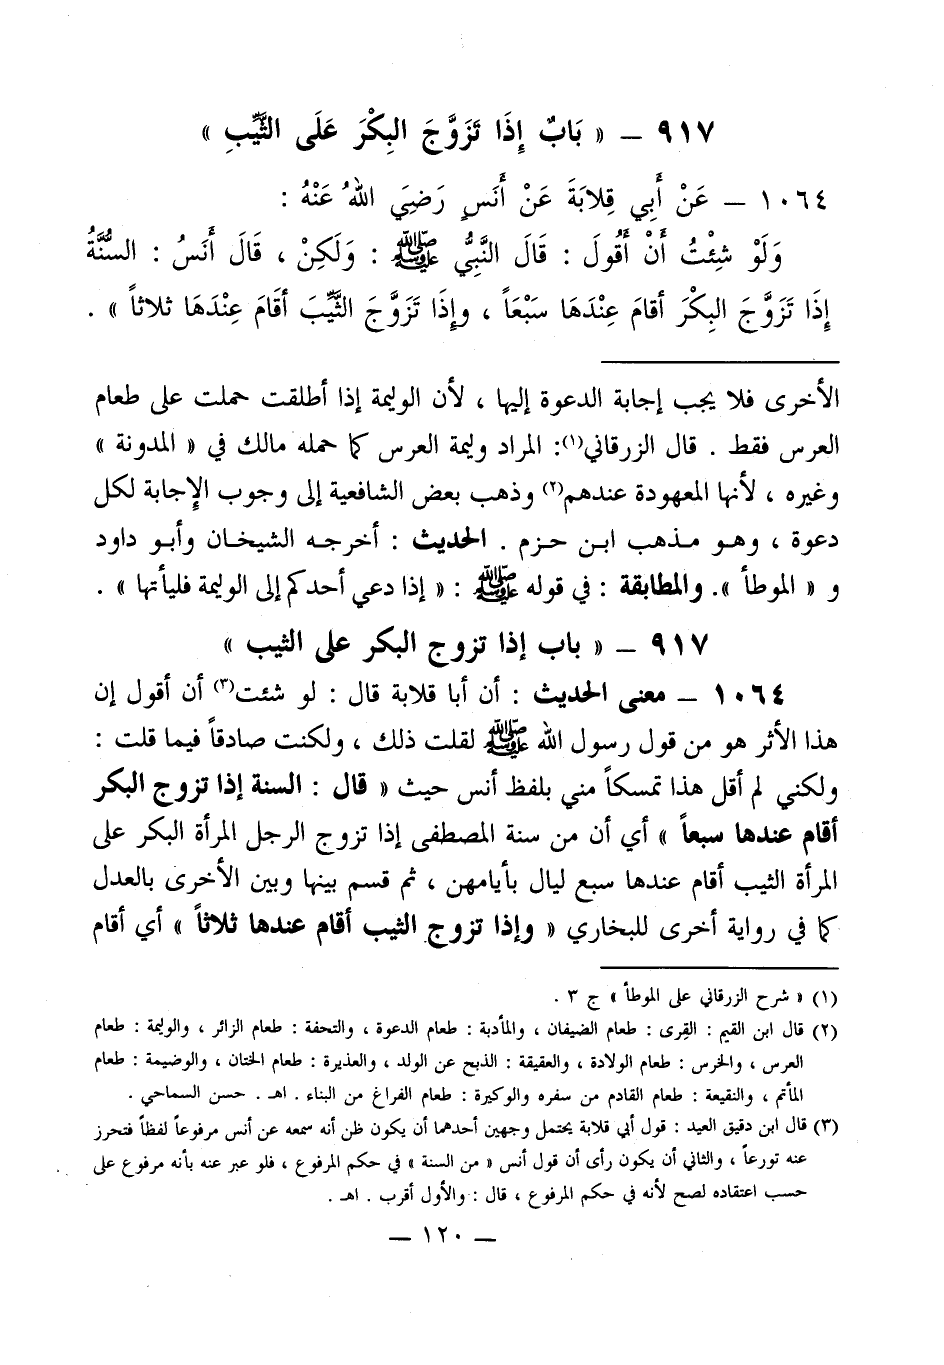 ٩١٧ – « بَابٌ إِذَا تَزَوَّجَ البِكْرَ عَلَى الثَّيِّبِ »
١٠٦٤ – عَنْ أَبِي قِلابَةَ عَنْ أَنَسٍ رَضِيَ اللهُ عَنْهُ :
وَلَوْ شِئْتُ أَنْ أَقُولَ : قَالَ النَّبِيُّ ﷺ : وَلَكِنْ ، قَالَ أَنَسُ : السُّنَّةُ
إِذَا تَزَوَّجَ البِكْرَ أقَامَ عِنْدَهَا سَبْعَاً ، وإِذَا تَزَوَّجَ الثَّيِّبَ أقَامَ عِنْدَهَا ثلاثاً » .
الأخرى فلا يجب إجابة الدعوة إليها ، لأن الوليمة إذا أطلقت حملت على طعام
العرس فقط . قال الزرقاني(١): المراد وليمة العرس كما حمله مالك في « المدونة »
وغيره ، لأنها المعهودة عندهم(٢) وذهب بعض الشافعية إلى وجوب الإجابة لكل
دعوة ، وهو مذهب ابن حزم . الحديث : أخرجه الشيخان وأبو داود
و « الموطأ ». والمطابقة : في قوله ﷺ : « إذا دعي أحدكم إلى الوليمة فليأتها » .
٩١٧ – « باب إذا تزوج البكر على الثيب »
١٠٦٤ – معنى الحديث : أن أبا قلابة قال : لو شئت(٣) أن أقول إن
هذا الأثر هو من قول رسول الله ﷺ لقلت ذلك ، ولكنت صادقاً فيما قلت :
ولكني لم أقل هذا تمسكاً مني بلفظ أنس حيث « قال : السنة إذا تزوج البكر
أقام عندها سبعاً » أي أن من سنة المصطفى إذا تزوج الرجل المرأة البكر على
المرأة الثيب أقام عندها سبع ليال بأيامهن ، ثم قسم بينها وبين الأخرى بالعدل
كما في رواية أخرى للبخاري « وإذا تزوج الثيب أقام عندها ثلاثاً » أي أقام
(١) « شرح الزرقاني على الموطأ » ج ٣ .
(٢) قال ابن القيم : القِرى : طعام الضيفان ، والمأدبة : طعام الدعوة ، والتحفة : طعام الزائر ، والوليمة : طعام
العرس ، والخرس : طعام الولادة ، والعقيقة : الذبح عن الولد ، والعذيرة : طعام الختان ، والوضيمة : طعام
المأتم ، والنقيعة : طعام القادم من سفره والوكيرة : طعام الفراغ من البناء . اهـ . حسن السماحي .
(٣) قال ابن دقيق العيد : قول أبي قلابة يحتمل وجهين أحدهما أن يكون ظن أنه سمعه عن أنس مرفوعاً لفظاً فتحرز
عنه تورعاً ، والثاني أن يكون رأى أن قول أنس « من السنة » في حكم المرفوع ، فلو عبر عنه بأنه مرفوع على
حسب اعتقاده لصح لأنه في حكم المرفوع ، قال : والأول أقرب . اهـ .
– ١٢٠ –